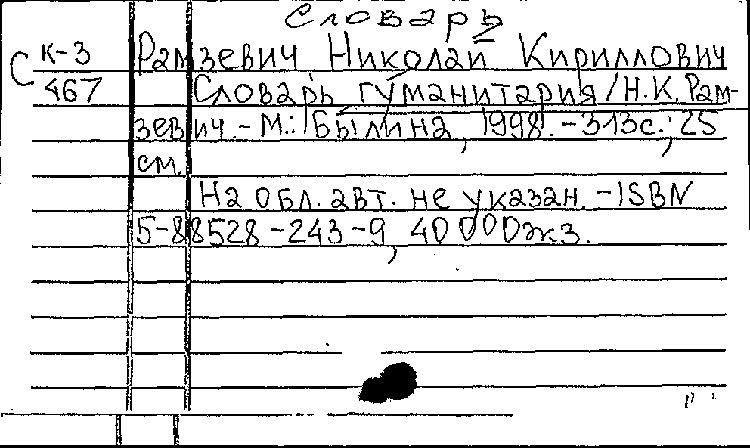 Словарь
С К-3
467
Рамзевич Николай Кириллович
Словарь гуманитария / Н.К. Рам-
зевич. - М.: Былина, 1998. - 313с.; 25
см.
На обл. авт. не указан. - ISBN
5-88528-243-9, 40000экз.